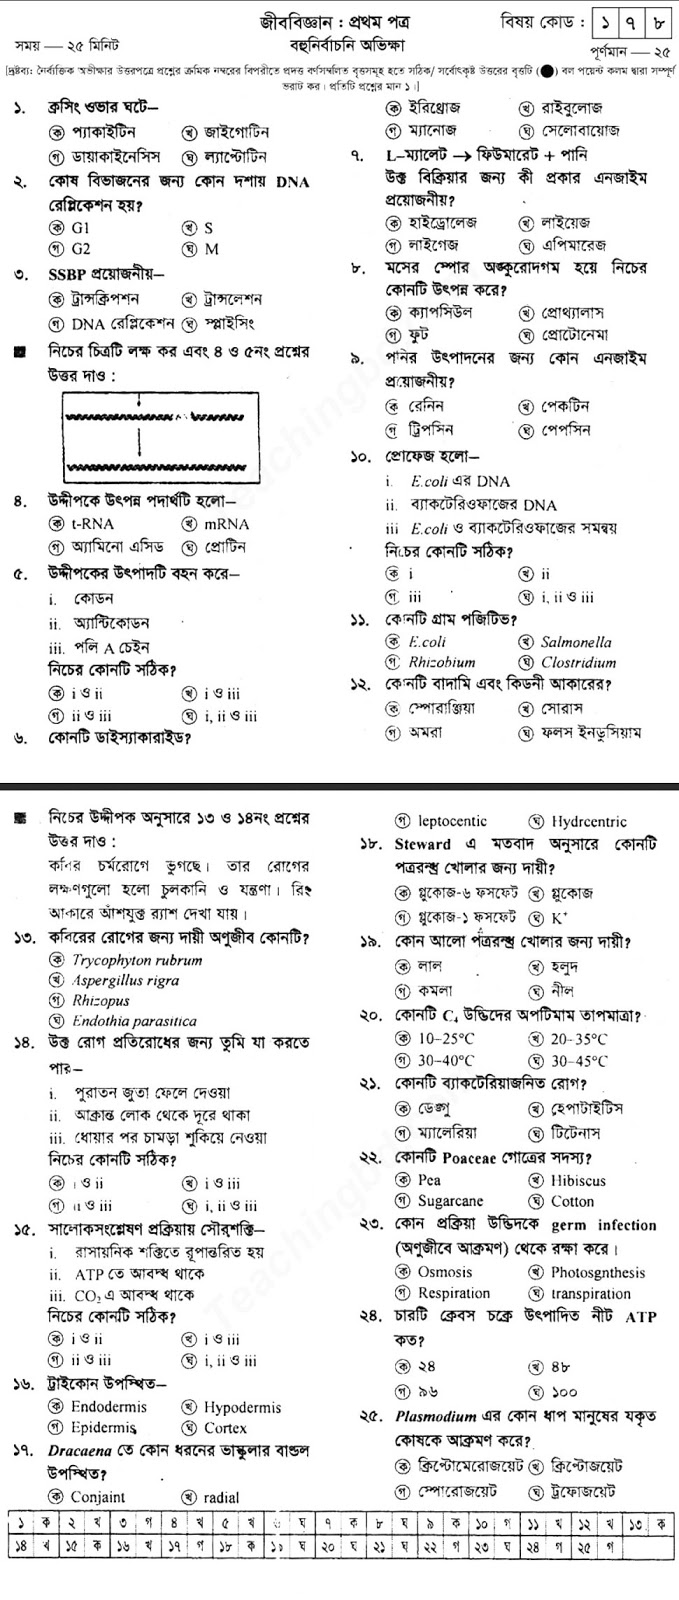 জীববিজ্ঞান : প্রথম পত্র
বিষয় কোড : ১ ৭ ৮
সময় — ২৫ মিনিট
বহুনির্বাচনি অভিক্ষা
পূর্ণমান — ২৫
[দ্রষ্টব্য: নৈর্ব্যক্তিক অভীক্ষার উত্তরপত্রে প্রশ্নের ক্রমিক নম্বরের বিপরীতে প্রদত্ত বর্ণসম্বলিত বৃত্তসমূহ হতে সঠিক/ সর্বোৎকৃষ্ট উত্তরের বৃত্তটি (●) বল পয়েন্ট কলম দ্বারা সম্পূর্ণ
ভরাট কর। প্রতিটি প্রশ্নের মান ১।]
১. ক্রসিং ওভার ঘটে—
ক প্যাকাইটিন খ জাইগোটিন
গ ডায়াকাইনেসিস ঘ ল্যাপ্টোটিন
২. কোষ বিভাজনের জন্য কোন দশায় DNA
রেপ্লিকেশন হয়?
ক G1 খ S
গ G2 ঘ M
৩. SSBP প্রয়োজনীয়—
ক ট্রান্সক্রিপশন খ ট্রান্সলেশন
গ DNA রেপ্লিকেশন ঘ স্প্লাইসিং
নিচের চিত্রটি লক্ষ কর এবং ৪ ও ৫নং প্রশ্নের
উত্তর দাও :
৪. উদ্দীপকে উৎপন্ন পদার্থটি হলো—
ক t-RNA খ mRNA
গ অ্যামিনো এসিড ঘ প্রোটিন
৫. উদ্দীপকের উৎপাদটি বহন করে—
i. কোডন
ii. অ্যান্টিকোডন
iii. পলি A চেইন
নিচের কোনটি সঠিক?
ক i ও ii খ i ও iii
গ ii ও iii ঘ i, ii ও iii
৬. কোনটি ডাইস্যাকারাইড?
ক ইরিথ্রোজ খ রাইবুলোজ
গ ম্যানোজ ঘ সেলোবায়োজ
৭. L-ম্যালেট → ফিউমারেট + পানি
উক্ত বিক্রিয়ার জন্য কী প্রকার এনজাইম
প্রয়োজনীয়?
ক হাইড্রোলেজ খ লাইয়েজ
গ লাইগেজ ঘ এপিমারেজ
৮. মসের স্পোর অঙ্কুরোদগম হয়ে নিচের
কোনটি উৎপন্ন করে?
ক ক্যাপসিউল খ প্রোথ্যালাস
গ ফুট ঘ প্রোটোনেমা
৯. পনির উৎপাদনের জন্য কোন এনজাইম
প্রয়োজনীয়?
ক রেনিন খ পেকটিন
গ ট্রিপসিন ঘ পেপসিন
১০. প্রোফেজ হলো—
i. E.coli এর DNA
ii. ব্যাকটেরিওফাজের DNA
iii E.coli ও ব্যাকটেরিওফাজের সমন্বয়
নিচের কোনটি সঠিক?
ক i খ ii
গ iii ঘ i, ii ও iii
১১. কোনটি গ্রাম পজিটিভ?
ক E.coli খ Salmonella
গ Rhizobium ঘ Clostridium
১২. কোনটি বাদামি এবং কিডনী আকারের?
ক স্পোরাঞ্জিয়া খ সোরাস
গ অমরা ঘ ফলস ইনডুসিয়াম
নিচের উদ্দীপক অনুসারে ১৩ ও ১৪নং প্রশ্নের
উত্তর দাও :
কবির চর্মরোগে ভুগছে। তার রোগের
লক্ষণগুলো হলো চুলকানি ও যন্ত্রণা। রিং
আকারে আঁশযুক্ত র‍্যাশ দেখা যায়।
১৩. কবিরের রোগের জন্য দায়ী অণুজীব কোনটি?
ক Trycophyton rubrum
খ Aspergillus rigra
গ Rhizopus
ঘ Endothia parasitica
১৪. উক্ত রোগ প্রতিরোধের জন্য তুমি যা করতে
পার—
i. পুরাতন জুতা ফেলে দেওয়া
ii. আক্রান্ত লোক থেকে দূরে থাকা
iii. ধোয়ার পর চামড়া শুকিয়ে নেওয়া
নিচের কোনটি সঠিক?
ক i ও ii খ i ও iii
গ ii ও iii ঘ i, ii ও iii
১৫. সালোকসংশ্লেষণ প্রক্রিয়ায় সৌরশক্তি—
i. রাসায়নিক শক্তিতে রূপান্তরিত হয়
ii. ATP তে আবদ্ধ থাকে
iii. CO₂ এ আবদ্ধ থাকে
নিচের কোনটি সঠিক?
ক i ও ii খ i ও iii
গ ii ও iii ঘ i, ii ও iii
১৬. ট্রাইকোন উপস্থিত—
ক Endodermis খ Hypodermis
গ Epidermis ঘ Cortex
১৭. Dracaena তে কোন ধরনের ভাস্কুলার বান্ডল
উপস্থিত?
ক Conjaint খ radial
গ leptocentic ঘ Hydrcentric
১৮. Steward এ মতবাদ অনুসারে কোনটি
পত্ররন্ধ্র খোলার জন্য দায়ী?
ক গ্লুকোজ-৬ ফসফেট খ গ্লুকোজ
গ গ্লুকোজ-১ ফসফেট ঘ K⁺
১৯. কোন আলো পত্ররন্ধ্র খোলার জন্য দায়ী?
ক লাল খ হলুদ
গ কমলা ঘ নীল
২০. কোনটি C₄ উদ্ভিদের অপটিমাম তাপমাত্রা?
ক 10-25°C খ 20-35°C
গ 30-40°C ঘ 30-45°C
২১. কোনটি ব্যাকটেরিয়াজনিত রোগ?
ক ডেঙ্গু খ হেপাটাইটিস
গ ম্যালেরিয়া ঘ টিটেনাস
২২. কোনটি Poaceae গোত্রের সদস্য?
ক Pea খ Hibiscus
গ Sugarcane ঘ Cotton
২৩. কোন প্রক্রিয়া উদ্ভিদকে germ infection
(অণুজীবে আক্রমণ) থেকে রক্ষা করে।
ক Osmosis খ Photosgnthesis
গ Respiration ঘ transpiration
২৪. চারটি ক্রেবস চক্রে উৎপাদিত নীট ATP
কত?
ক ২৪ খ ৪৮
গ ৯৬ ঘ ১০০
২৫. Plasmodium এর কোন ধাপ মানুষের যকৃত
কোষকে আক্রমণ করে?
ক ক্রিপ্টোমেরোজয়েট খ ক্রিপ্টোজয়েট
গ স্পোরোজয়েট ঘ ট্রফোজয়েট
১ ক ২ খ ৩ গ ৪ খ ৫ খ ৬ ঘ ৭ ক ৮ ঘ ৯ ক ১০ গ ১১ ঘ ১২ খ ১৩ ক
১৪ খ ১৫ ক ১৬ খ ১৭ গ ১৮ ক ১৯ ঘ ২০ ঘ ২১ ঘ ২২ গ ২৩ ঘ ২৪ গ ২৫ গ